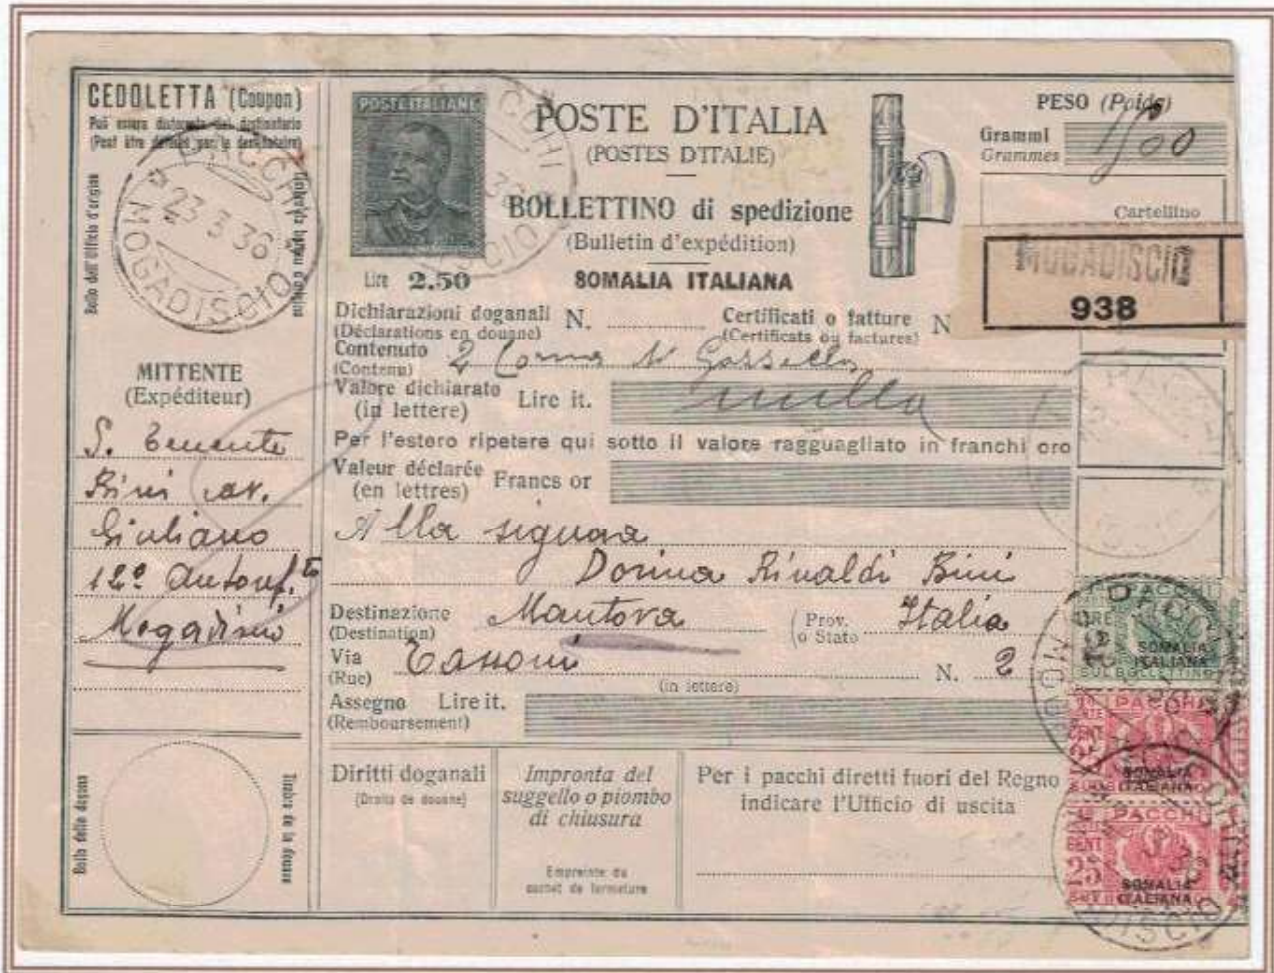 CEDOLETTA (Coupon)
Può essere distaccata dal destinatario
(Peut être détaché par le destinataire)
Bollo dell'Ufficio d'origine
PACCHI
23 3 36
MOGADISCIO
MITTENTE
(Expéditeur)
S. Tenente
Bini cav.
Giuliano
12º Autorep.to
Mogadiscio
Bollo della dogana
Timbre de la douane
POSTE ITALIANE
Lire 2.50
POSTE D'ITALIA
(POSTES D'ITALIE)
BOLLETTINO di spedizione
(Bulletin d'expédition)
SOMALIA ITALIANA
PESO (Poids)
Grammi
Grammes
Cartellino
MOGADISCIO
938
Dichiarazioni doganali N.
(Déclarations en douane)
Certificati o fatture N
(Certificats ou factures)
Contenuto 2 Corna
(Contenu)
Valore dichiarato Lire it. nulla
(in lettere)
Per l'estero ripetere qui sotto il valore ragguagliato in franchi oro
Valeur déclarée Francs or
(en lettres)
Alla signora
Dorina Rinaldi Bini
Destinazione Mantova Prov. o Stato Italia
(Destination)
Via Tassoni N. 2
(Rue)
(in lettere)
Assegno Lire it.
(Remboursement)
Diritti doganali
(Droits de douane)
Impronta del
suggello o piombo
di chiusura
Empreinte du
cachet de fermeture
Per i pacchi diretti fuori del Regno
indicare l'Ufficio di uscita
PACCHI
LIRE
SOMALIA
ITALIANA
SUL BOLLETTINO
PACCHI
CENT
SOMALIA
ITALIANA
PACCHI
CENT
25
SOMALIA
ITALIANA